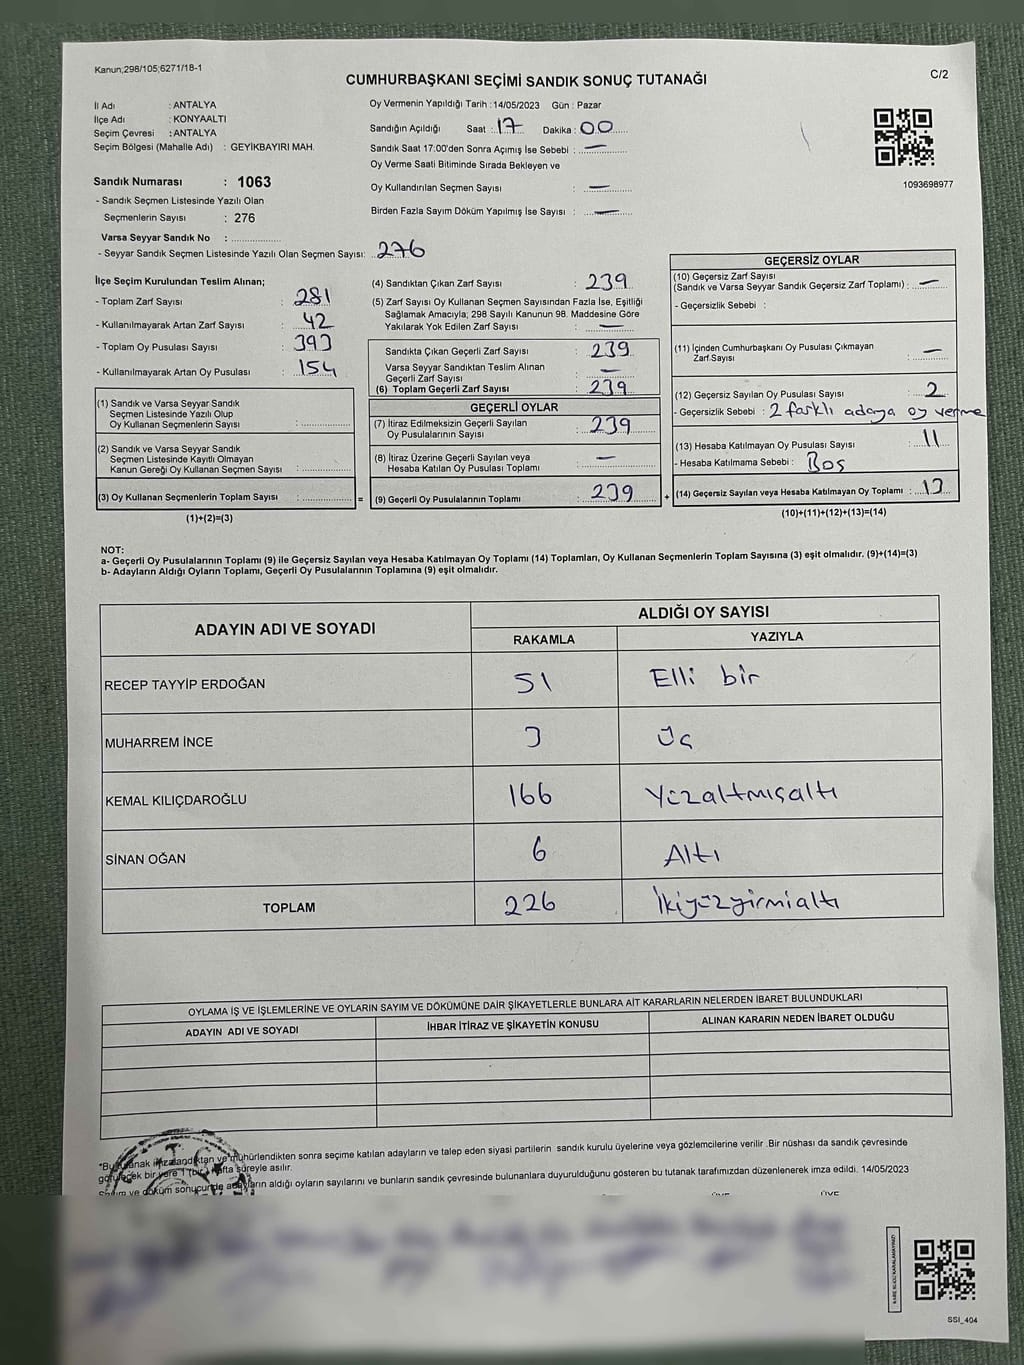 Kanun;298/105;6271/18-1
C/2
CUMHURBAŞKANI SEÇİMİ SANDIK SONUÇ TUTANAĞI
İl Adı : ANTALYA
İlçe Adı : KONYAALTI
Seçim Çevresi : ANTALYA
Seçim Bölgesi (Mahalle Adı) : GEYİKBAYIRI MAH.
Oy Vermenin Yapıldığı Tarih : 14/05/2023 Gün : Pazar
Sandığın Açıldığı Saat : 17 Dakika : 00
Sandık Saat 17:00'den Sonra Açımış İse Sebebi : —
Oy Verme Saati Bitiminde Sırada Bekleyen ve
Oy Kullandırılan Seçmen Sayısı : —
Birden Fazla Sayım Döküm Yapılmış İse Sayısı : —
1093698977
Sandık Numarası : 1063
- Sandık Seçmen Listesinde Yazılı Olan
Seçmenlerin Sayısı : 276
Varsa Seyyar Sandık No :
- Seyyar Sandık Seçmen Listesinde Yazılı Olan Seçmen Sayısı: 276
İlçe Seçim Kurulundan Teslim Alınan;
- Toplam Zarf Sayısı : 281
- Kullanılmayarak Artan Zarf Sayısı : 42
- Toplam Oy Pusulası Sayısı : 393
- Kullanılmayarak Artan Oy Pusulası : 154
(1) Sandık ve Varsa Seyyar Sandık
Seçmen Listesinde Yazılı Olup
Oy Kullanan Seçmenlerin Sayısı :
(2) Sandık ve Varsa Seyyar Sandık
Seçmen Listesinde Kayıtlı Olmayan
Kanun Gereği Oy Kullanan Seçmen Sayısı :
(3) Oy Kullanan Seçmenlerin Toplam Sayısı : =
(1)+(2)=(3)
(4) Sandıktan Çıkan Zarf Sayısı : 239
(5) Zarf Sayısı Oy Kullanan Seçmen Sayısından Fazla İse, Eşitliği
Sağlamak Amacıyla; 298 Sayılı Kanunun 98. Maddesine Göre
Yakılarak Yok Edilen Zarf Sayısı : —
Sandıkta Çıkan Geçerli Zarf Sayısı : 239
Varsa Seyyar Sandıktan Teslim Alınan
Geçerli Zarf Sayısı : —
(6) Toplam Geçerli Zarf Sayısı : 239
GEÇERLİ OYLAR
(7) İtiraz Edilmeksizin Geçerli Sayılan
Oy Pusulalarının Sayısı : 239
(8) İtiraz Üzerine Geçerli Sayılan veya
Hesaba Katılan Oy Pusulası Toplamı : —
(9) Geçerli Oy Pusulalarının Toplamı : 239 +
GEÇERSİZ OYLAR
(10) Geçersiz Zarf Sayısı
(Sandık ve Varsa Seyyar Sandık Geçersiz Zarf Toplamı) : —
- Geçersizlik Sebebi :
(11) İçinden Cumhurbaşkanı Oy Pusulası Çıkmayan
Zarf Sayısı : —
(12) Geçersiz Sayılan Oy Pusulası Sayısı : 2
- Geçersizlik Sebebi : 2 farklı adaya oy verme
(13) Hesaba Katılmayan Oy Pusulası Sayısı : 11
- Hesaba Katılmama Sebebi : Boş
(14) Geçersiz Sayılan veya Hesaba Katılmayan Oy Toplamı : 13
(10)+(11)+(12)+(13)=(14)
NOT:
a- Geçerli Oy Pusulalarının Toplamı (9) ile Geçersiz Sayılan veya Hesaba Katılmayan Oy Toplamı (14) Toplamları, Oy Kullanan Seçmenlerin Toplam Sayısına (3) eşit olmalıdır. (9)+(14)=(3)
b- Adayların Aldığı Oyların Toplamı, Geçerli Oy Pusulalarının Toplamına (9) eşit olmalıdır.
ADAYIN ADI VE SOYADI
ALDIĞI OY SAYISI
RAKAMLA YAZIYLA
RECEP TAYYİP ERDOĞAN 51 Elli bir
MUHARREM İNCE 3 Üç
KEMAL KILIÇDAROĞLU 166 Yüzaltmışaltı
SİNAN OĞAN 6 Altı
TOPLAM 226 İkiyüzyirmialtı
OYLAMA İŞ VE İŞLEMLERİNE VE OYLARIN SAYIM VE DÖKÜMÜNE DAİR ŞİKAYETLERLE BUNLARA AİT KARARLARIN NELERDEN İBARET BULUNDUKLARI
ADAYIN ADI VE SOYADI İHBAR İTİRAZ VE ŞİKAYETİN KONUSU ALINAN KARARIN NEDEN İBARET OLDUĞU
*Bu tutanak imzalandıktan ve mühürlendikten sonra seçime katılan adayların ve talep eden siyasi partilerin sandık kurulu üyelerine veya gözlemcilerine verilir .Bir nüshası da sandık çevresinde
görülecek bir yere 1 (bir) hafta süreyle asılır.
Sayım ve döküm sonucunda adayların aldığı oyların sayılarını ve bunların sandık çevresinde bulunanlara duyurulduğunu gösteren bu tutanak tarafımızdan düzenlenerek imza edildi. 14/05/2023
SSI_404